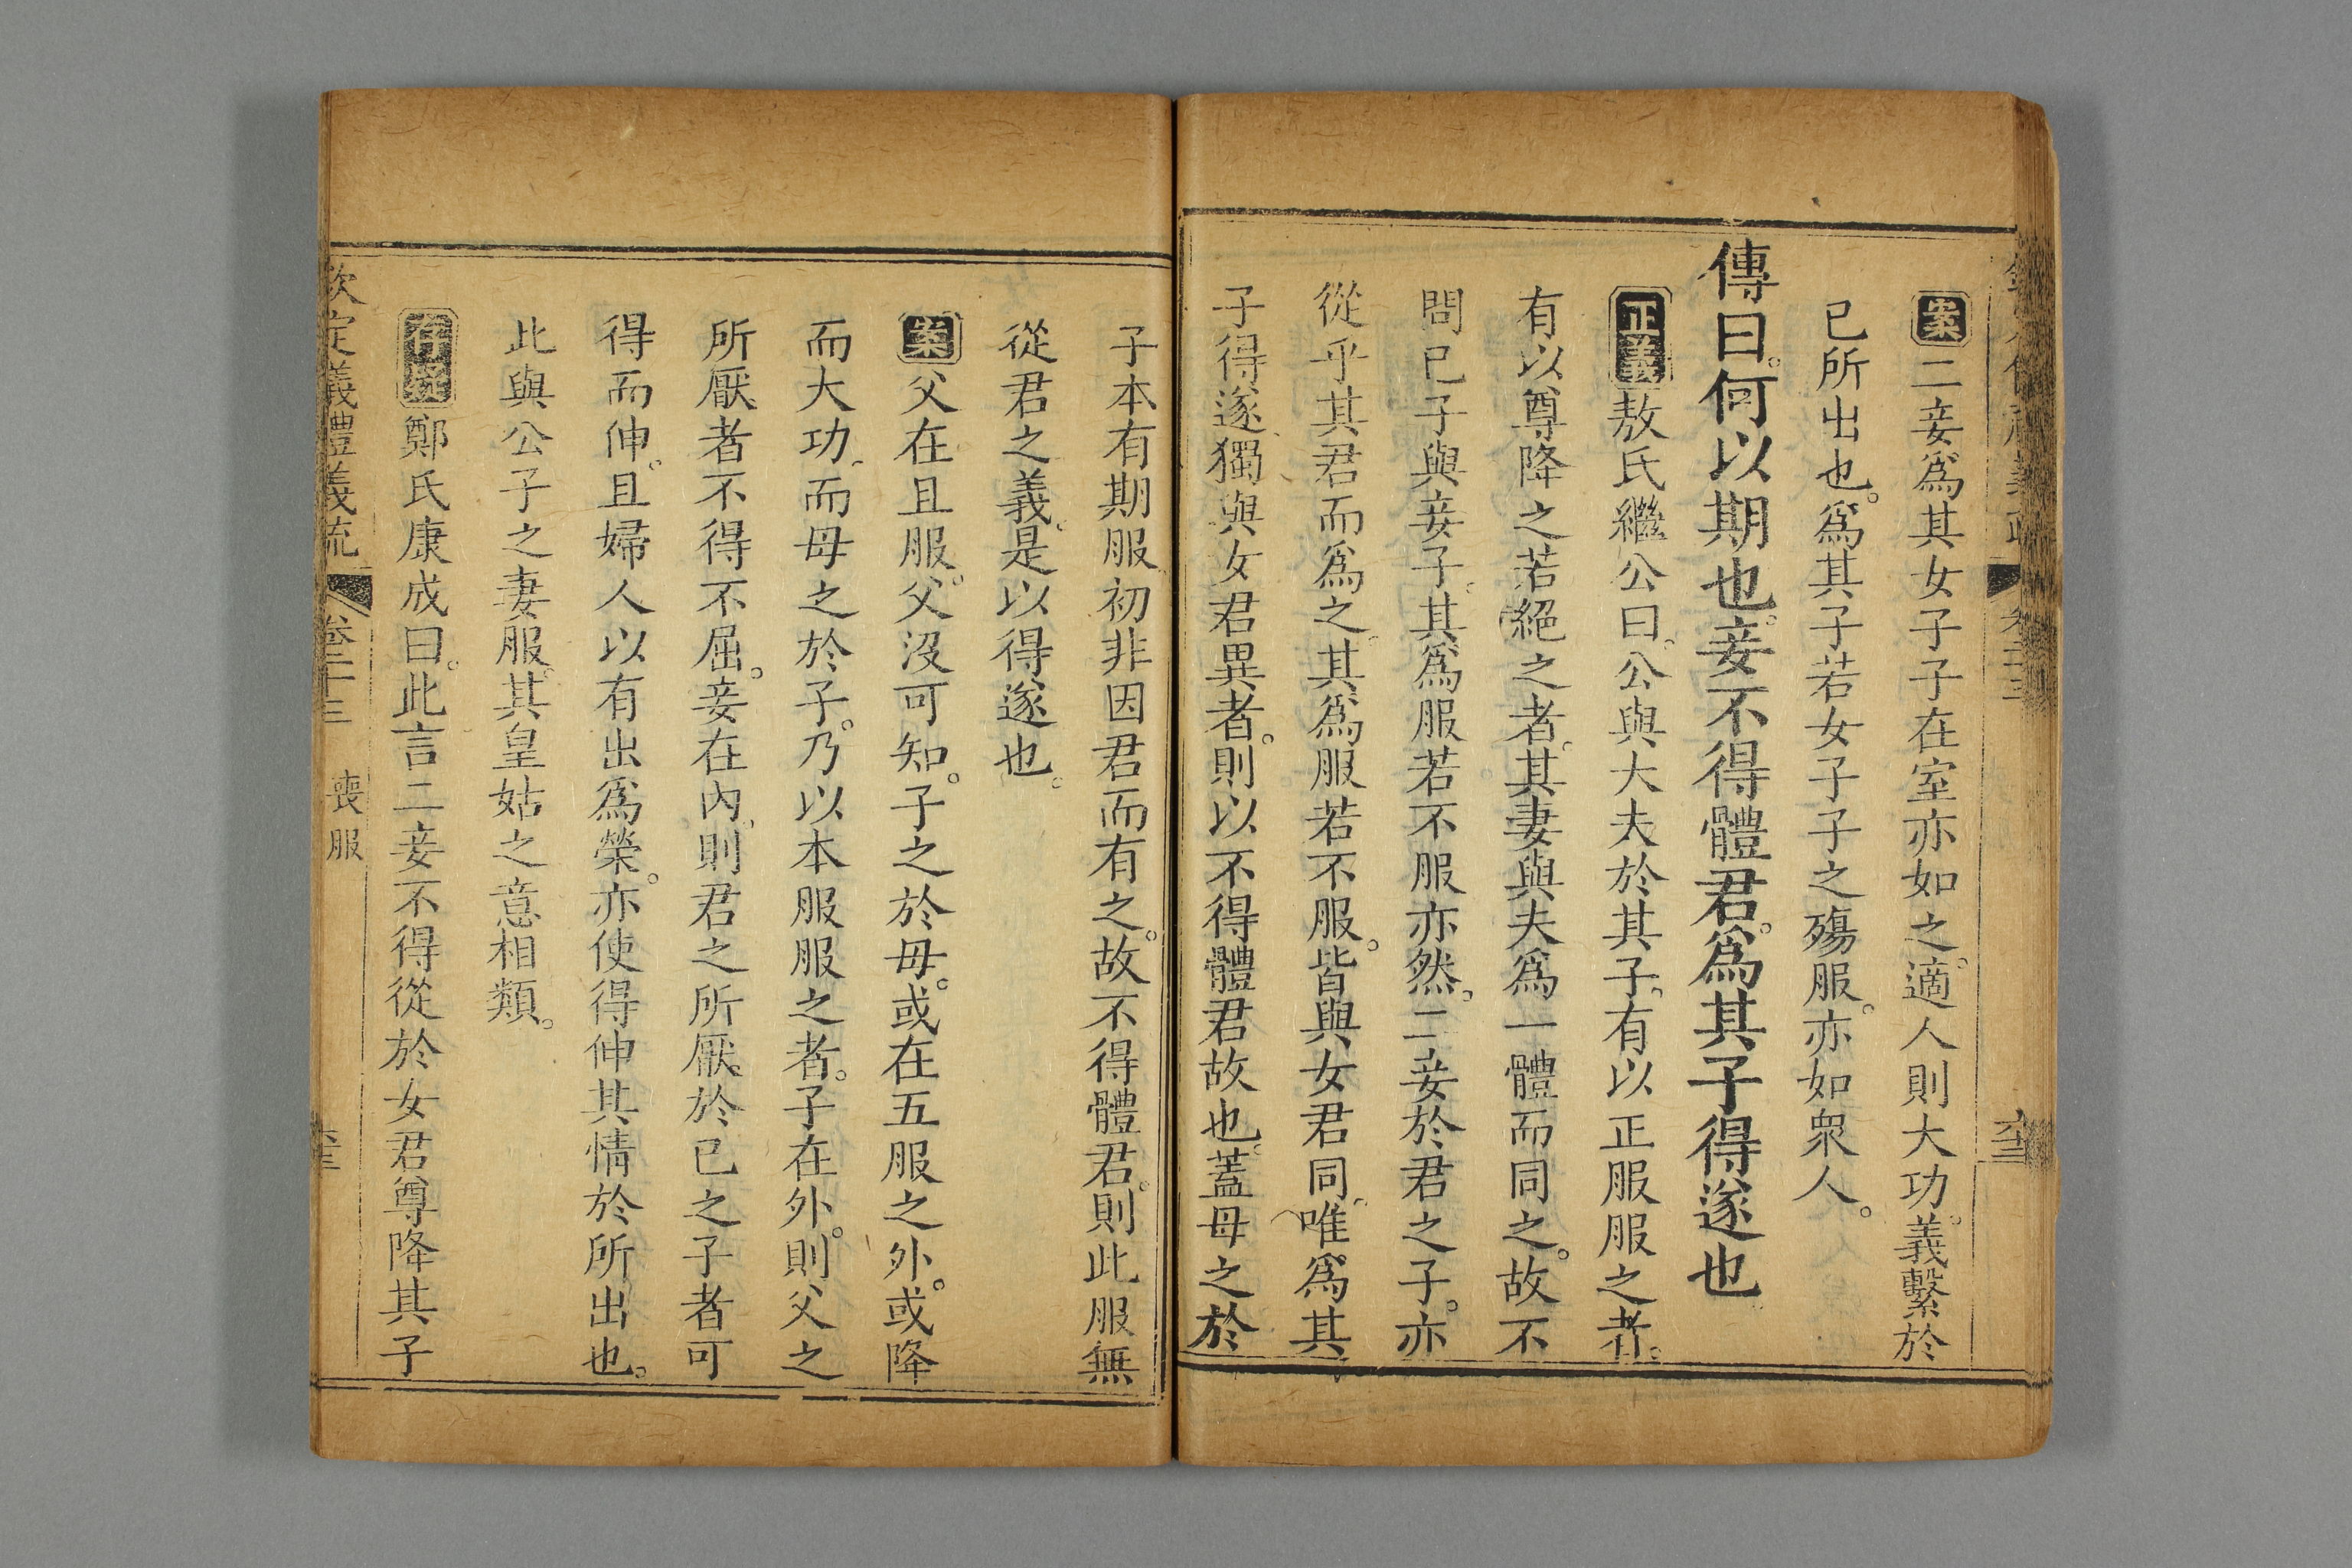 案二妾爲其女子子在室亦如之。適人則大功。義繫於
己所出也。爲其子若女子子之殤服。亦如衆人。
傳曰。何以期也。妾不得體君。爲其子得遂也
正義敖氏繼公曰。公與大夫於其子。有以正服服之者。
有以尊降之若絕之者。其妻與夫爲一體而同之。故不
問己子與妾子。其爲服若不服亦然。二妾於君之子。亦
從乎其君而爲之。其爲服若不服。皆與女君同。唯爲其
子得遂。獨與女君異者。則以不得體君故也。蓋母之於
子本有期服。初非因君而有之。故不得體君。則此服無
從君之義。是以得遂也。
案父在且服。父沒可知。子之於母。或在五服之外。或降
而大功。而母之於子。乃以本服服之者。子在外。則父之
所厭者不得不屈。妾在內。則君之所厭。於己之子者可
得而伸。且婦人以有出爲榮。亦使得伸其情於所出也。
此與公子之妻服其皇姑之意相類。
鄭氏康成曰。此言二妾不得從於女君尊降其子
欽定義禮義疏 卷二十三 喪服